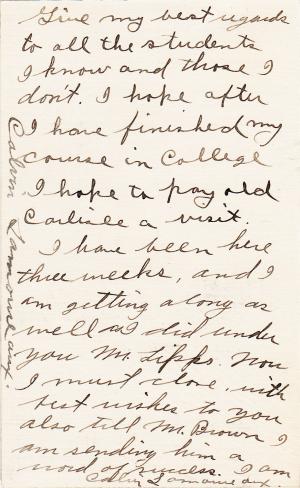 Give my best regards
to all the students
I know and those I
don't. I hope after
I have finished my
course in College
I hope to pay old
Carlisle a visit.
I have been here
three weeks, and I
am getting along as
well as I did under
you Mr. Lipps. Now
I must close with
best wishes to you
also tell Mr. Brown I
am sending him a
word of success. I am
Calvin Lamoureaux.
Calvin Lamoureaux.